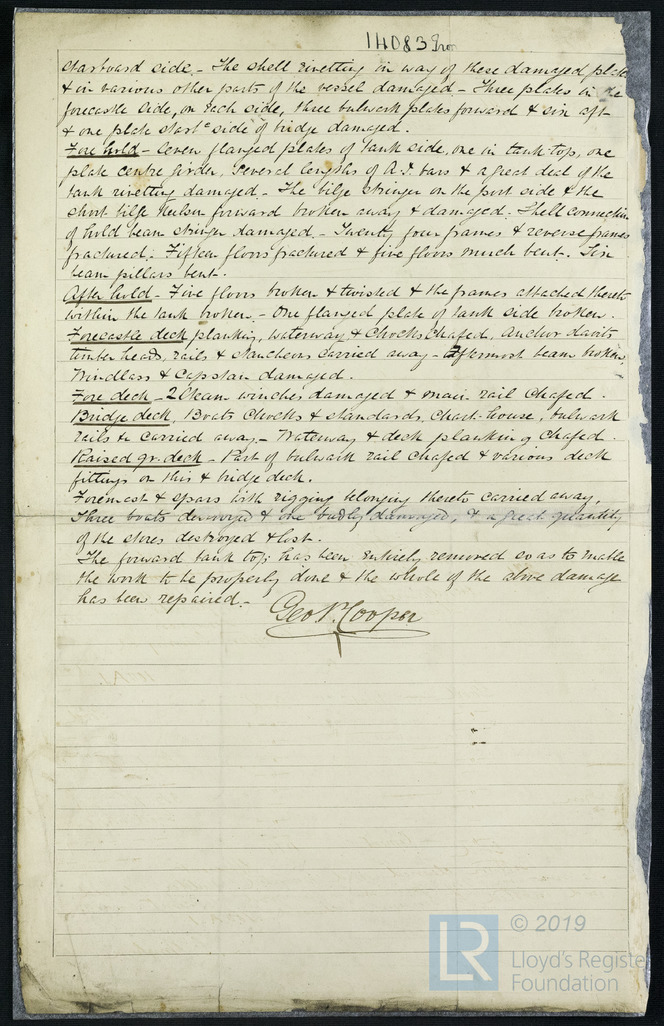 14083 Iron
starboard side. - The shell rivetting in way of these damaged plates
& in various other parts of the vessel damaged - Three plates in the
forecastle side, on each side, three bulwark plates forward & six aft
& one plate starb^d side of bridge damaged.
Fore hold - Seven flanged plates of tank side, one in tank top, one
plate centre girder, several lengths of A.I. bars & a great deal of the
tank rivetting damaged - The bilge stringer on the port side & the
short bilge keelson forward broken away & damaged. Shell connection
of hold beam stringer damaged - Twenty four frames & reverse frames
fractured. Fifteen floors fractured & five floors much bent. Six
beam pillars bent.
After hold - Five floors broken & twisted & the frames attached thereto
within the tank broken. - One flanged plate of tank side broken.
Forecastle deck planking, waterway & chocks chafed, anchor davits
timber heads, rails & stancheons carried away - Aftermost beam broken,
Windlass & Capstan damaged.
Fore deck - 2 steam winches damaged & main rail chafed.
Bridge deck, Boats Chocks & standards, Chart-house, bulwark
rails &c carried away - Waterway & deck planking chafed.
Raised qr. deck - Part of bulwark rail chafed & various deck
fittings on this & bridge deck.
Foremast & spars with rigging belonging thereto carried away,
Three boats destroyed & one badly damaged, & a great quantity
of the stores destroyed & lost.
The forward tank top has been entirely removed so as to make
the work to be properly done & the whole of the above damage
has been repaired. -
Geo. P. Cooper
LR
© 2019
Lloyd's Register
Foundation